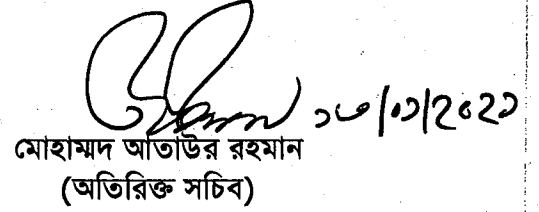 ১৩/০১/২০২১
মোহাম্মদ আতাউর রহমান
(অতিরিক্ত সচিব)